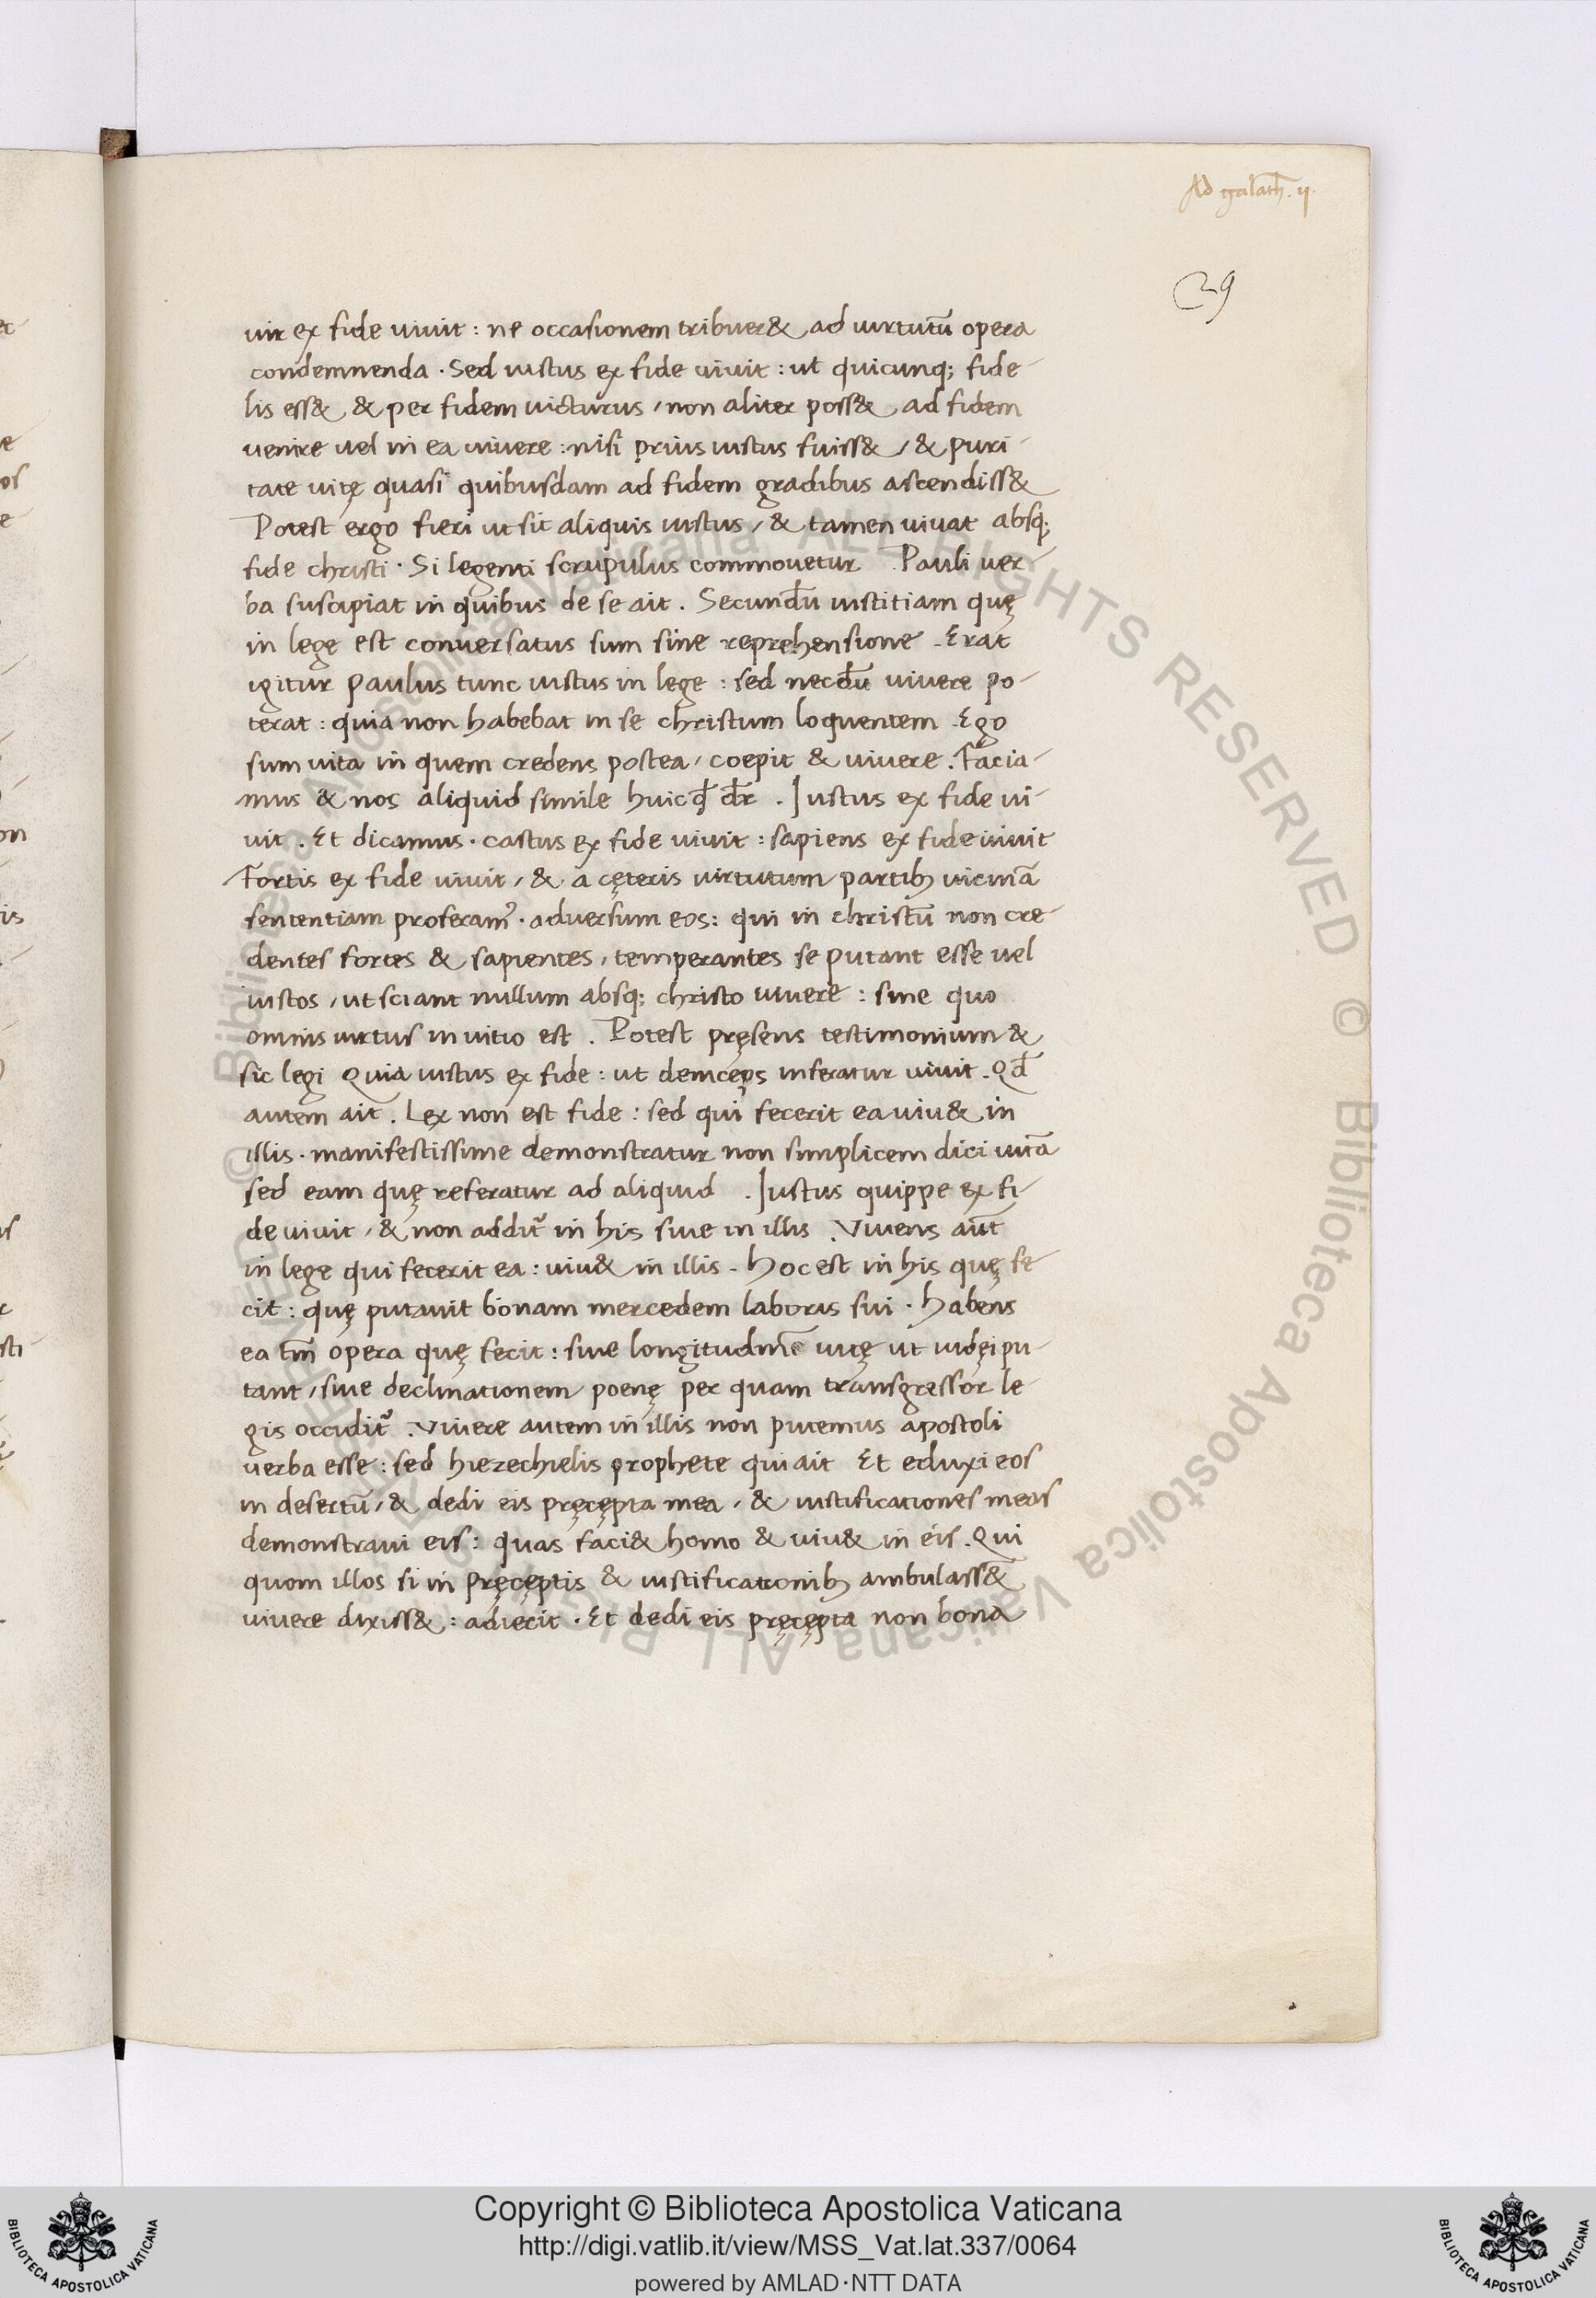 Ad galath̄. ij.
29
uir ex fide uiuit : ne occasionem tribuer& ad uirtutū opera
condemnenda . Sed iustus ex fide uiuit : ut quicunq; fide-
lis ess& & per fidem uicturus / non aliter poss& ad fidem
venire uel in ea uiuere : nisi prius iustus fuiss& / & puri-
tate uitę quasi quibusdam ad fidem gradibus ascendiss&
Potest ergo fieri ut sit aliquis iustus / & tamen uiuat absq;
fide christi . Si legenti scrupulus commouetur Pauli uer-
ba suscipiat in quibus de se ait . Secundū iustitiam quę
in lege est conuersatus sum sine reprehensione . Erat
igitur paulus tunc iustus in lege : sed necdū uiuere po-
terat : quia non habebat in se christum loquentem . Ego
sum uita in quem credens postea / coepit & uiuere . Facia-
mus & nos aliquid simile huic qđ dr̄ . Iustus ex fide ui-
uit . Et dicamus . castus ex fide uiuit : sapiens ex fide uiuit
Fortis ex fide uiuit / & a cęteris uirtutum partib; uicinā
sententiam proferam᾽ . aduersum eos : qui in christū non cre-
dentes fortes & sapientes / temperantes se putant esse uel
iustos / ut sciant nullum absq; christo uiuere : sine quo
omnis uirtus in uitio est . Potest pręsens testimonium &
sic legi Quia iustus ex fide : ut deinceps inferatur uiuit . Qđ
autem ait . Lex non est fide : sed qui fecerit ea uiu& in
illis . manifestissime demonstratur non simplicem dici uitā
sed eam quę referatur ad aliquid . Iustus quippe ex fi-
de uiuit / & non addit᾽ in his siue in illis . Viuens aūt
in lege qui fecerit ea : uiu& in illis . hoc est in his quę fe
cit : quę putauit bonam mercedem laboris sui . habens
ea tm̄ opera quę fecit : siue longitudinē uitę ut iudęi pu-
tant / siue declinationem poenę per quam transgressor le-
gis occidit᾽ . Viuere autem in illis non putemus apostoli
uerba esse : sed hiezechielis prophete qui ait Et eduxi eos
in desertū / & dedi eis pręcępta mea / & iustificationes meas
demonstraui eis : quas faci& homo & uiu& in eis . Qui
quom illos si in pręcęptis & iustificationib; ambulass&̄
uiuere dixiss& : adiecit . Et dedi eis pręcępta non bona
© Biblioteca Apostolica Vaticana ALL RIGHTS RESERVED
Copyright © Biblioteca Apostolica Vaticana
http://digi.vatlib.it/view/MSS_Vat.lat.337/0064
powered by AMLAD·NTT DATA
BIBLIOTECA APOSTOLICA VATICANA
BIBLIOTECA APOSTOLICA VATICANA